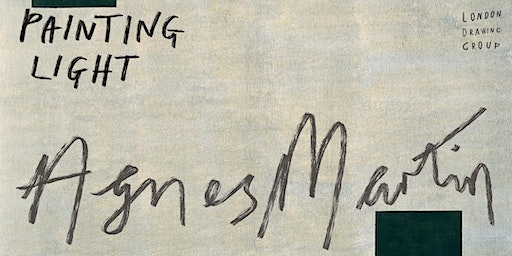 PAINTING
LIGHT
LONDON
DRAWING
GROUP
Agnes Martin